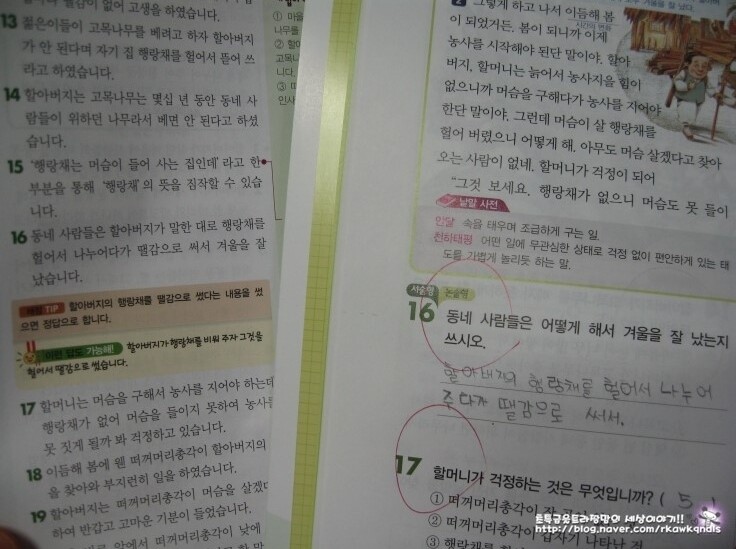 땔감이 없어 고생을 하였습니다.
13 젊은이들이 고목나무를 베려고 하자 할아버지
가 안 된다며 자기 집 행랑채를 헐어서 뜯어 쓰
라고 하였습니다.
14 할아버지는 고목나무는 몇십 년 동안 동네 사
람들이 위하던 나무라서 베면 안 된다고 하셨
습니다.
15 '행랑채는 머슴이 들어 사는 집인데'라고 한
부분을 통해 '행랑채'의 뜻을 짐작할 수 있습
니다.
16 동네 사람들은 할아버지가 말한 대로 행랑채를
헐어서 나누어다가 땔감으로 써서 겨울을 잘
났습니다.
채점 TIP 할아버지의 행랑채를 땔감으로 썼다는 내용을 썼
으면 정답으로 합니다.
이런 답도 가능해! 할아버지가 행랑채를 비워 주자 그것을
헐어서 땔감으로 썼습니다.
17 할머니는 머슴을 구해서 농사를 지어야 하는데
행랑채가 없어 머슴을 들이지 못하여 농사를
못 짓게 될까 봐 걱정하고 있습니다.
18 이듬해 봄에 웬 떠꺼머리총각이 할아버지의
을 찾아와 부지런히 일을 하였습니다.
19 할아버지는 떠꺼머리총각이 머슴을 살겠다
하여 반갑고 고마운 기분이 들었습니다.
앞에서 떠꺼머리총각이 낮에
① 마을
나무를
② 할아
고목나
니다.
③
인사
2 그렇게 하고 나서 이듬해 봄
시간의 변화
이 되었거든. 봄이 되니까 이제
농사를 시작해야 된단 말이야. 할아
버지, 할머니는 늙어서 농사지을 힘이
없으니까 머슴을 구해다가 농사를 지어야
한단 말이야. 그런데 머슴이 살 행랑채를
헐어 버렸으니 어떻게 해. 아무도 머슴 살겠다고 찾아
오는 사람이 없네. 할머니가 걱정이 되어
"그것 보세요. 행랑채가 없으니 머슴도 못 들이
낱말 사전
안달 속을 태우며 조급하게 구는 일.
천하태평 어떤 일에 무관심한 상태로 걱정 없이 편안하게 있는 태
도를 가볍게 놀리듯 하는 말.
서술형 논술형
16 동네 사람들은 어떻게 해서 겨울을 잘 났는지
쓰시오.
할아버지의 행랑채를 헐어서 나누어
주다가 땔감으로 써서.
17 할머니가 걱정하는 것은 무엇입니까? ( 5 )
① 떠꺼머리총각이
② 떠꺼머리총각이 갑자기 나타난 것
③ 행랑채를
토특금웃토라랑맘의 세상이야기!!
http://blog.naver.com/rkawkqndls